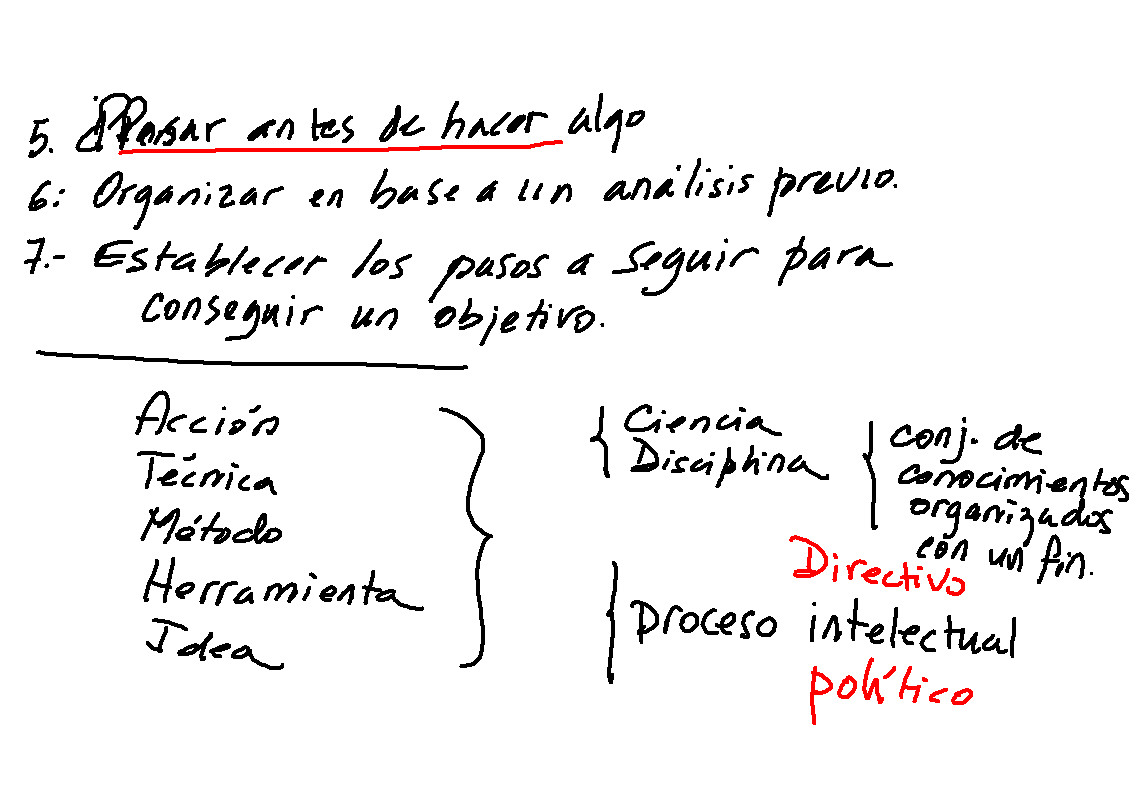 5. Pensar antes de hacer algo
6: Organizar en base a un análisis previo.
7.- Establecer los pasos a seguir para
conseguir un objetivo.
Acción
Técnica
Método
Herramienta
Idea
Ciencia
Disciplina
conj. de
conocimientos
organizados
con un fin.
Directivo
proceso intelectual
político